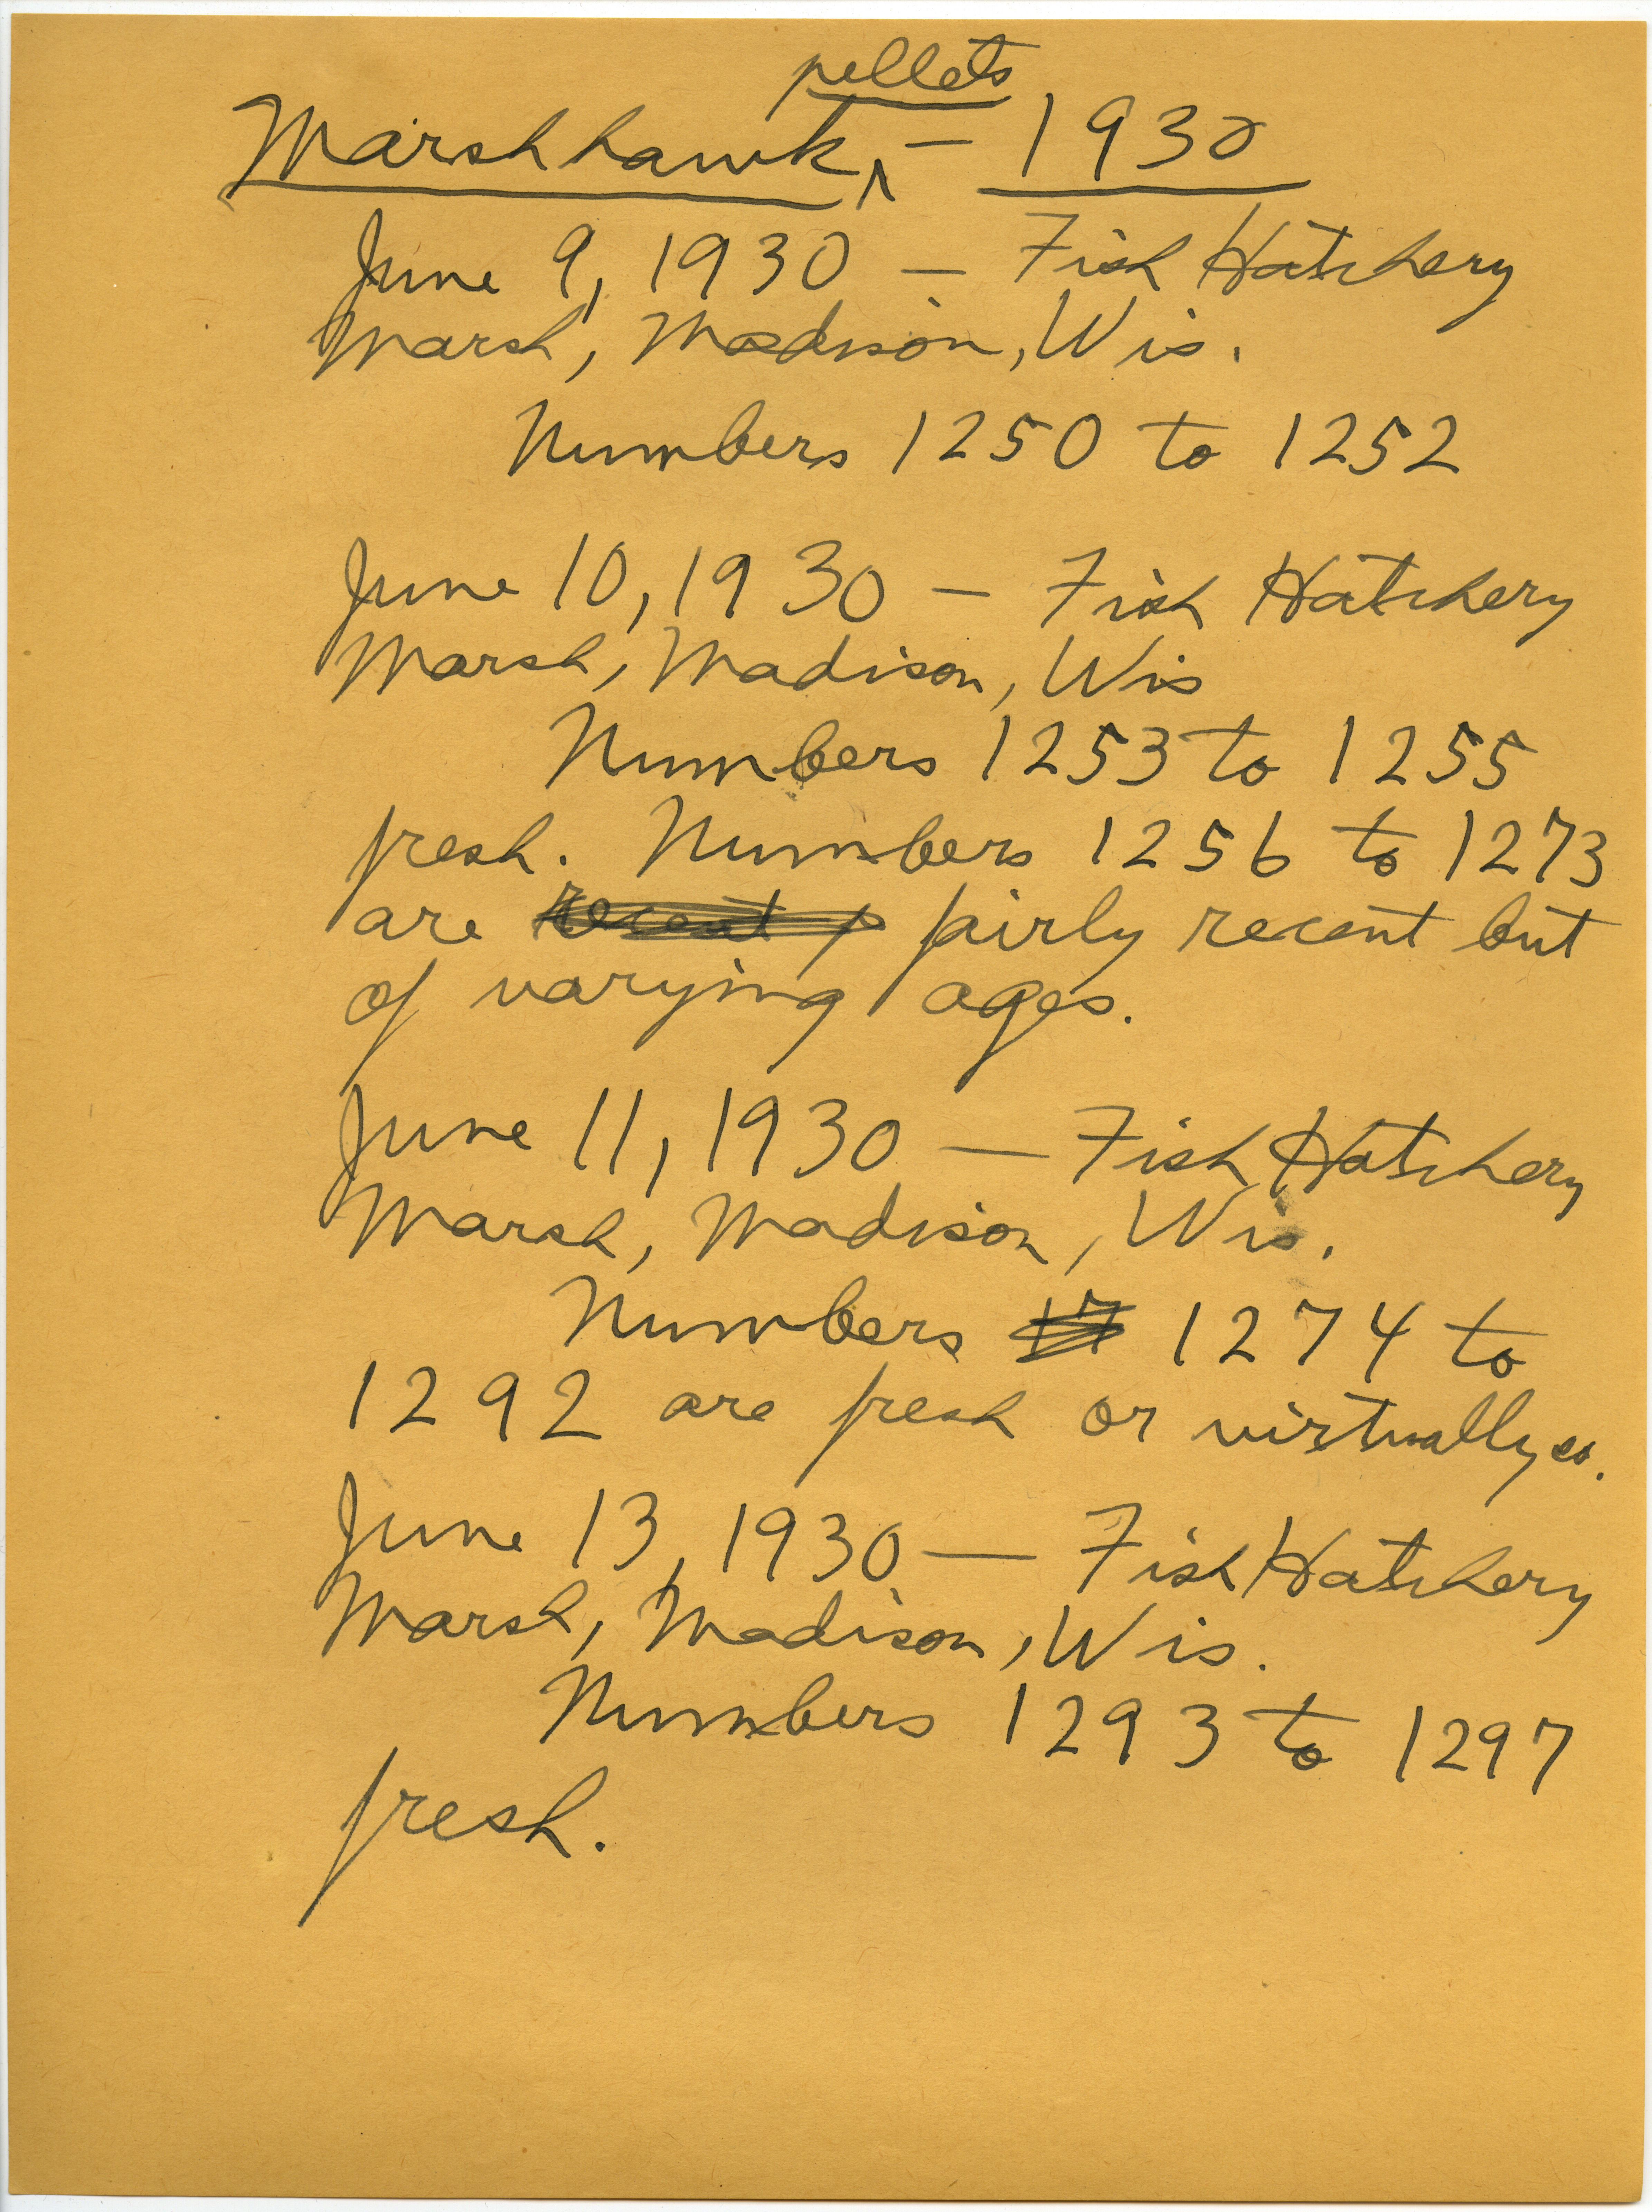 pellets
Marsh hawk ^ — 1930
June 9, 1930 — Fish Hatchery
Marsh, Madison, Wis.
Numbers 1250 to 1252
June 10, 1930 — Fish Hatchery
Marsh, Madison, Wis
Numbers 1253 to 1255
fresh. Numbers 1256 to 1273
are recent f fairly recent but
of varying ages.
June 11, 1930 — Fish Hatchery
Marsh, Madison, Wis.
Numbers 17 1274 to
1292 are fresh or virtually so.
June 13, 1930 — Fish Hatchery
Marsh, Madison, Wis.
Numbers 1293 to 1297
fresh.